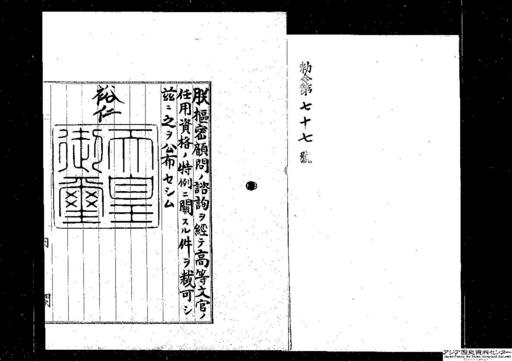 勅令第七十七號
朕樞密顧問ノ諮詢ヲ經テ高等文官ノ
任用資格ノ特例ニ關スル件ヲ裁可シ
茲ニ之ヲ公布セシム
裕仁
天皇御璽
内閣
アジア歴史資料センター